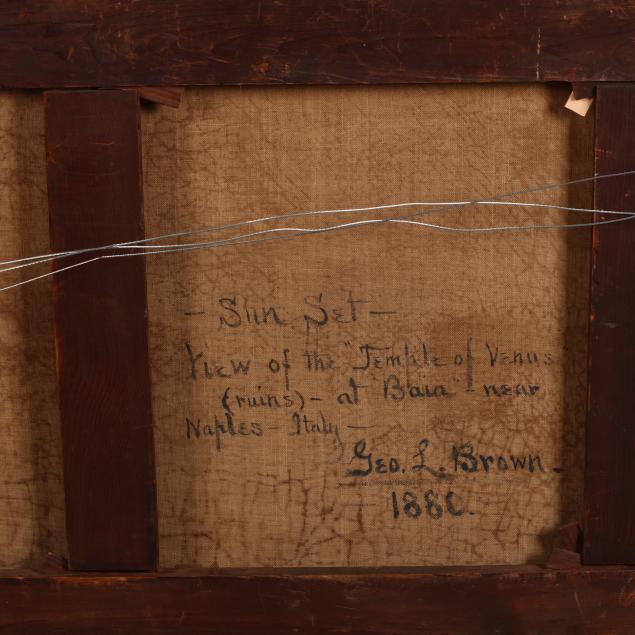 - Sun Set -
View of the "Temple of Venus"
(ruins) - at "Baia" - near
Naples - Italy -
Geo. L. Brown.
1880.